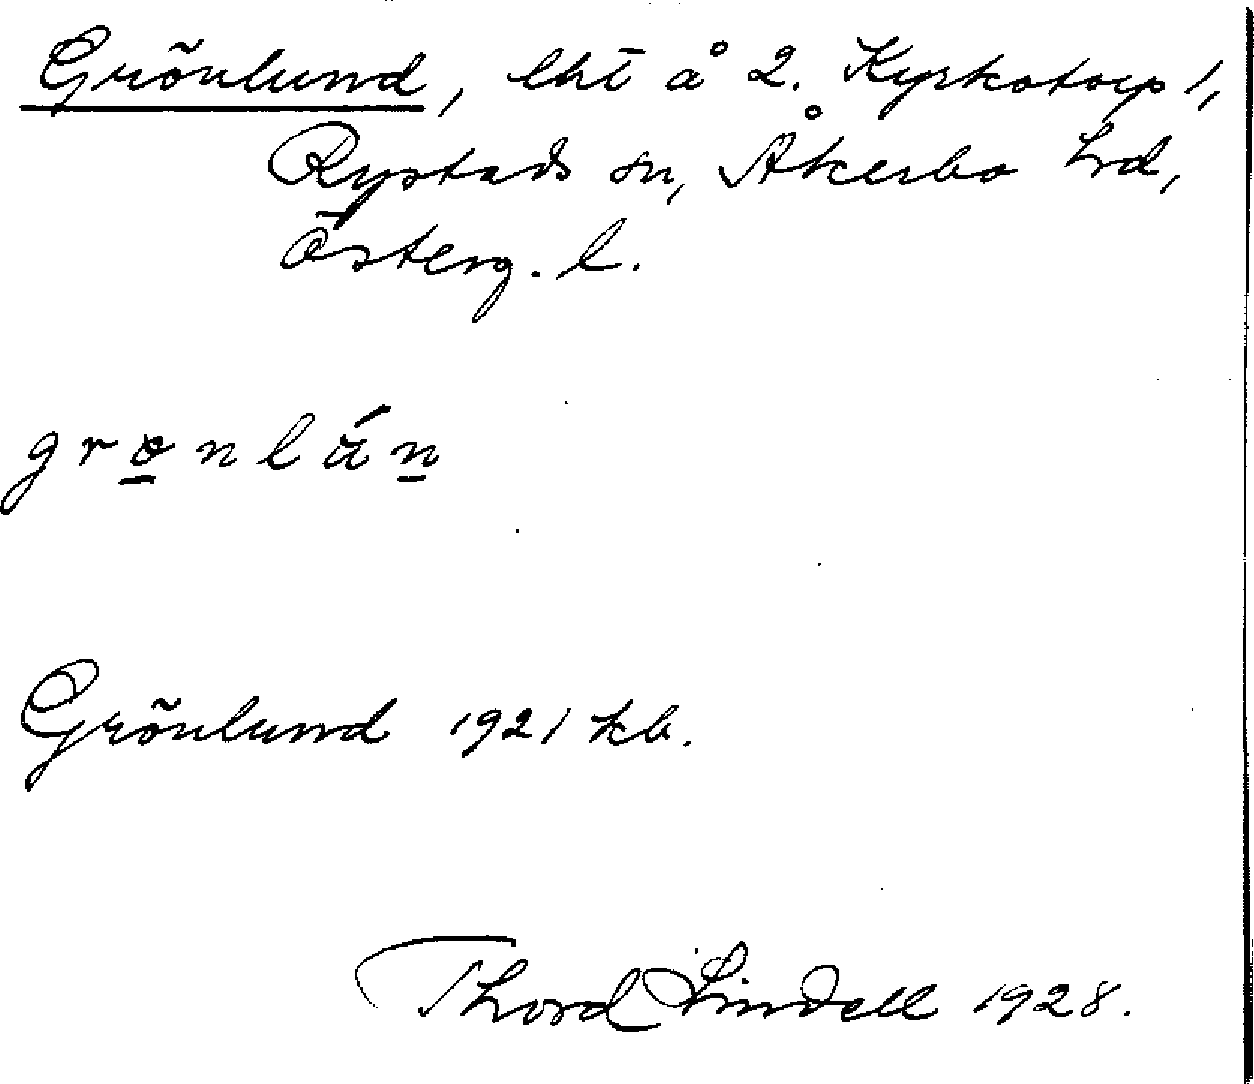 Grönlund, lht å 2. Kyrkotorp 1,
Rystads sn, Åkerbo hd,
Österg. l.
grø̲nlún̲
Grönlund 1921 kb.
Thord Lindell 1928.